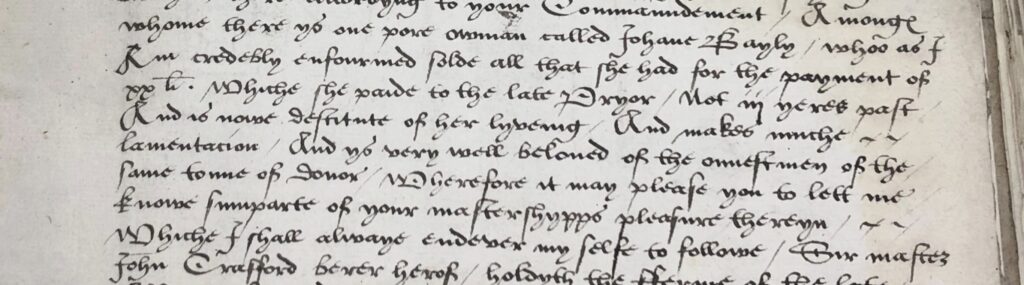 there accordyng to your Commaundement / Amonge
whome there ys one pore owman called Johane Bayly / whoo as I
Am credebly enfourmed solde all that she had for the payment of
xx li. Whiche she paide to the late Pryor / Not iij yeres past
And is nowe destitute of her lyveing / And makes muche ~ ~
lamentacion / And ys very well beloved of the onnestmen of the
same towne of Dovor / Wherefore it may please you to lett me
knowe sumparte of your mastershypps pleasure thereyn / ~ ~
Whiche I shall alwaye endever my selfe to followe / Sir master
John Trafford berer herof / holdyth the fferme of the late